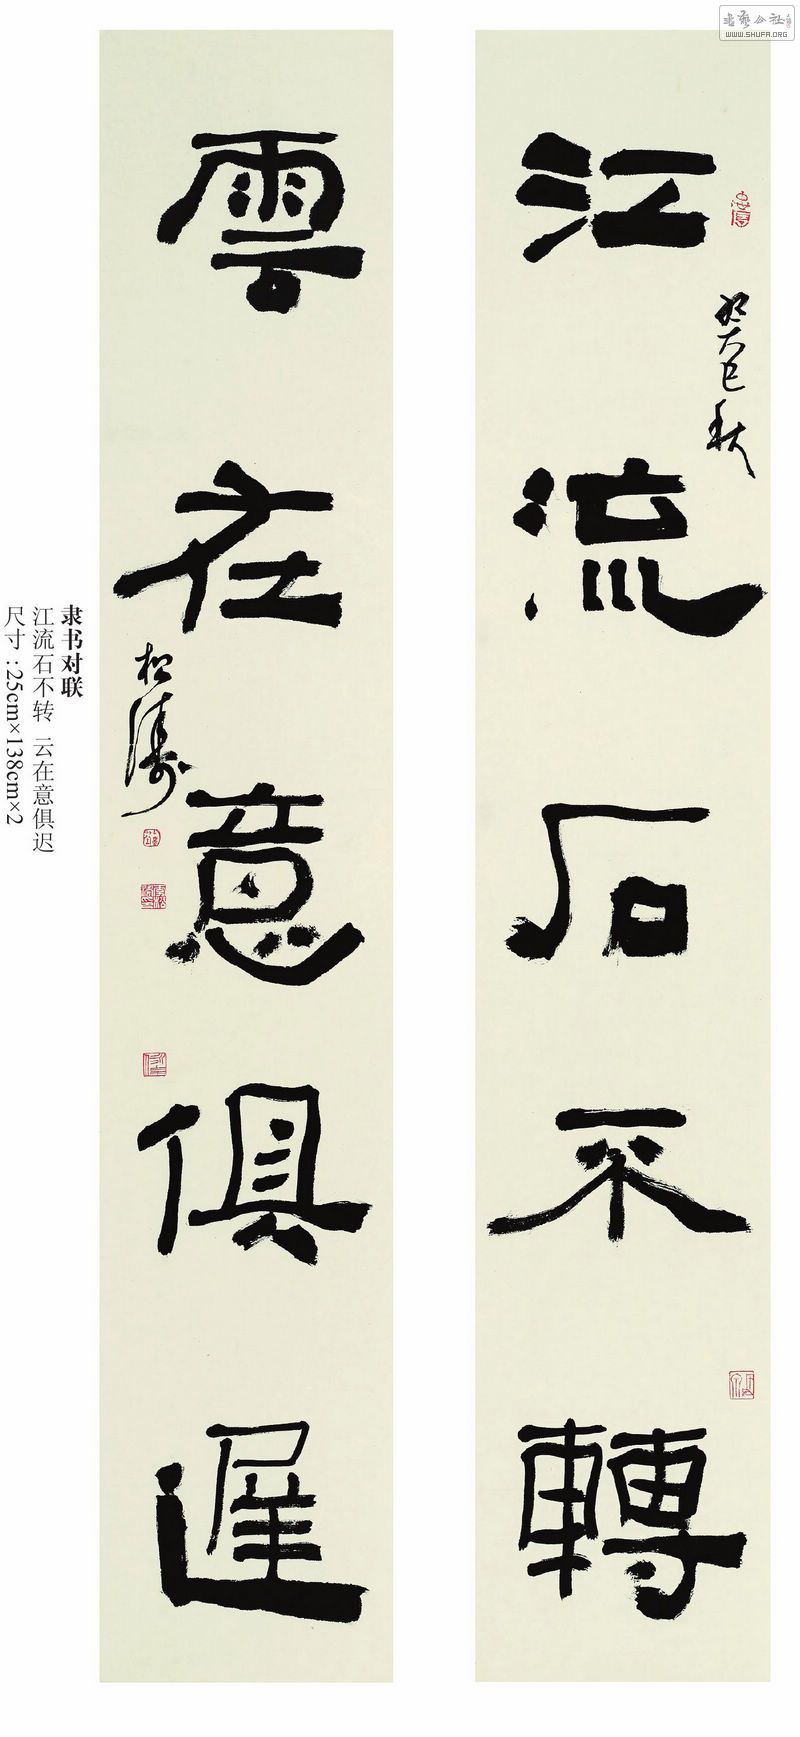 江流石不轉
癸巳秋
雲在意俱遲
松濤
隶书对联
江流石不转 云在意俱迟
尺寸:25cm×138cm×2
书艺公社
WWW.SHUFA.ORG